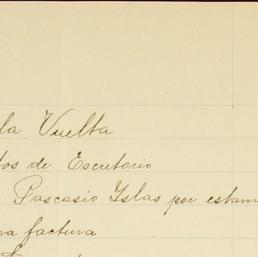 la Vuelta
tos de Escritorio
Pascasio Islas por estam
na factura